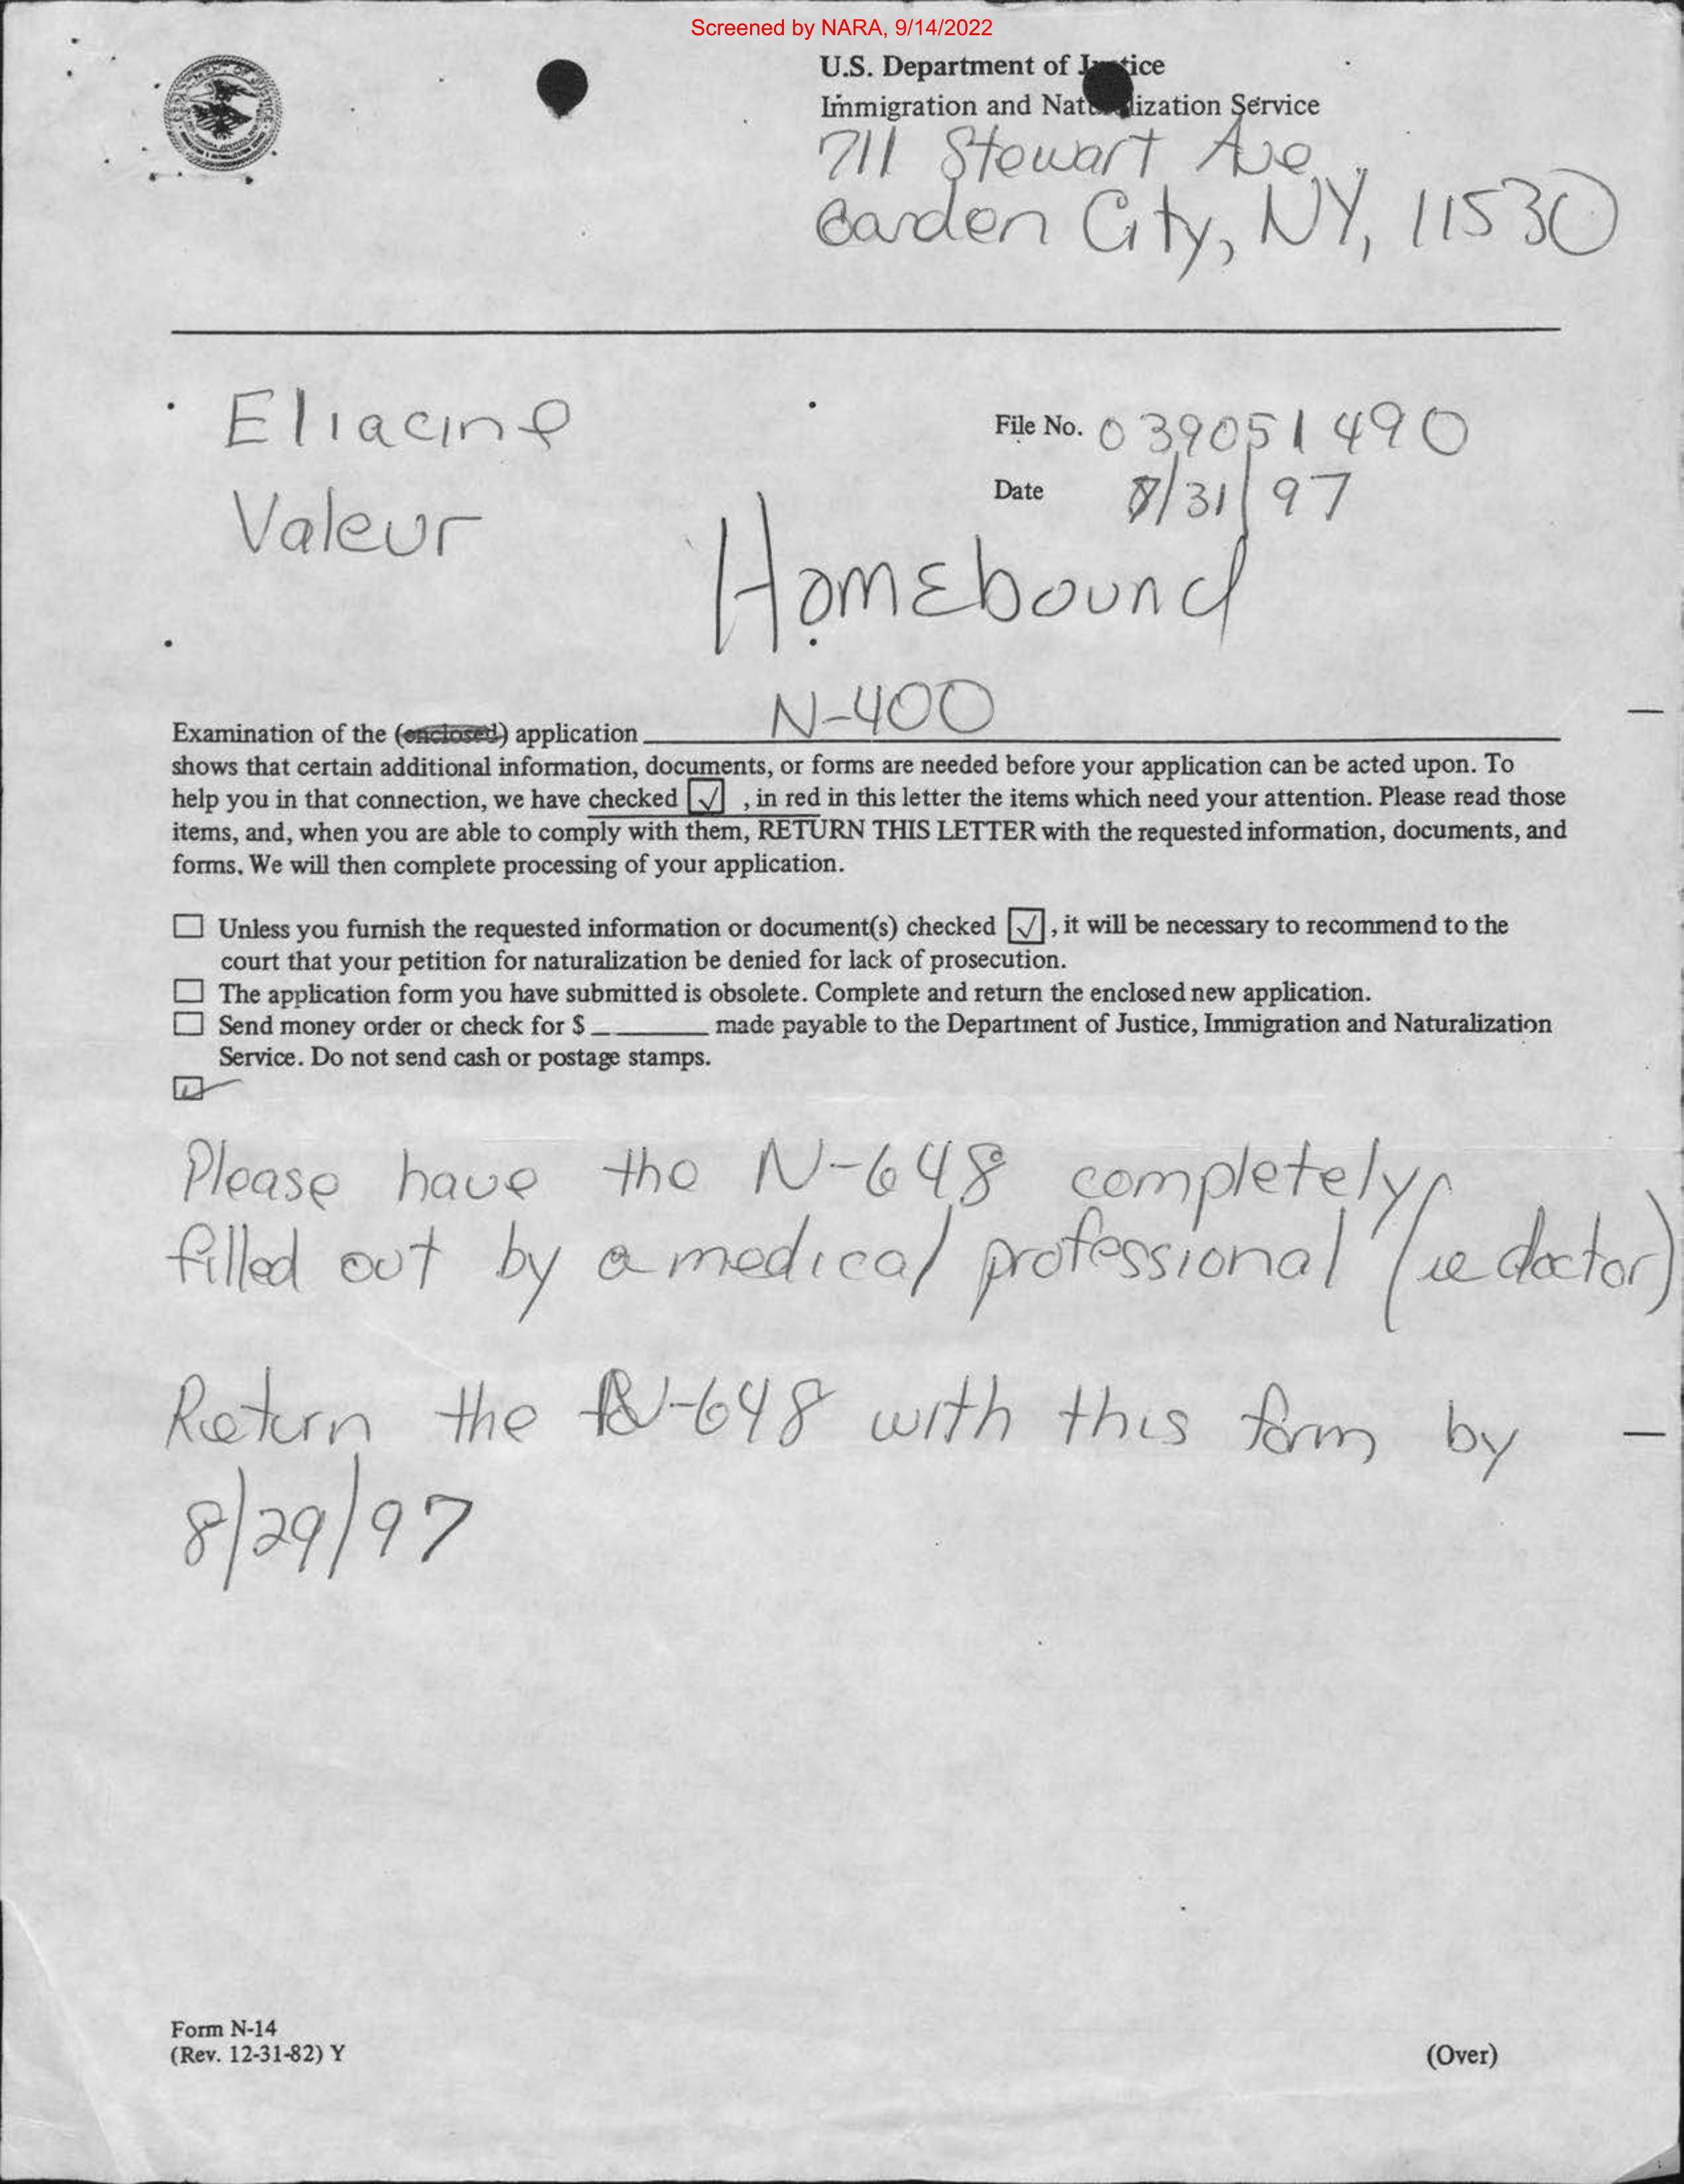 Screened by NARA, 9/14/2022
U.S. Department of Justice
Immigration and Naturalization Service
711 Stewart Ave
Garden City, NY, 11530
Eliacine
Valeur
File No. 039051490
Date /31/97
Homebound
Examination of the (enclosed) application N-400
shows that certain additional information, documents, or forms are needed before your application can be acted upon. To
help you in that connection, we have checked ☑ , in red in this letter the items which need your attention. Please read those
items, and, when you are able to comply with them, RETURN THIS LETTER with the requested information, documents, and
forms. We will then complete processing of your application.
☐ Unless you furnish the requested information or document(s) checked ☑ , it will be necessary to recommend to the
court that your petition for naturalization be denied for lack of prosecution.
☐ The application form you have submitted is obsolete. Complete and return the enclosed new application.
☐ Send money order or check for $ ______ made payable to the Department of Justice, Immigration and Naturalization
Service. Do not send cash or postage stamps.
☑
Please have the N-648 completely
filled out by a medical professional (ie doctor)
Return the N-648 with this form by
8/29/97
Form N-14
(Rev. 12-31-82) Y
(Over)